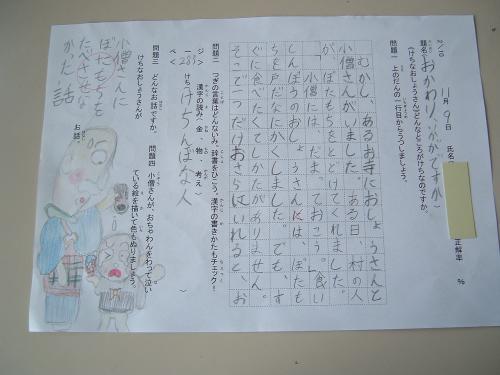 2/10
題名 おかわり、いかがですか
11月9日 氏名
(けちなおしょうさん)どんなところがけちなのか。
正解率 %
問題一 上のだんの一行目からうつしましょう。
むかし、あるお寺におしょうさんと
小僧さんがいました。ある日、村の人
が、ぼたもちをとどけてくれました。
「小僧には、だまっておこう。」食い
しんぼうのおしょうさんは、ぼたも
ちを戸だなにかくしました。でも、す
ぐに食べたくてしかたがありません。
そこで一こだけおさらにいれると、お
問題二 つぎの言葉はどんないみ。辞書をひこう。漢字の書きかたもチェック!
漢字の読み(金、物、考え)
ページ
281
けちんぼな人
問題三 どんなお話ですか。
けちなおしょうさんが
小僧さんに
ぼたもちを
たべさせな
かた話
お話。
問題四 小僧さんが、おちゃわんをわって泣い
ている絵を描いて色もぬりましょう。